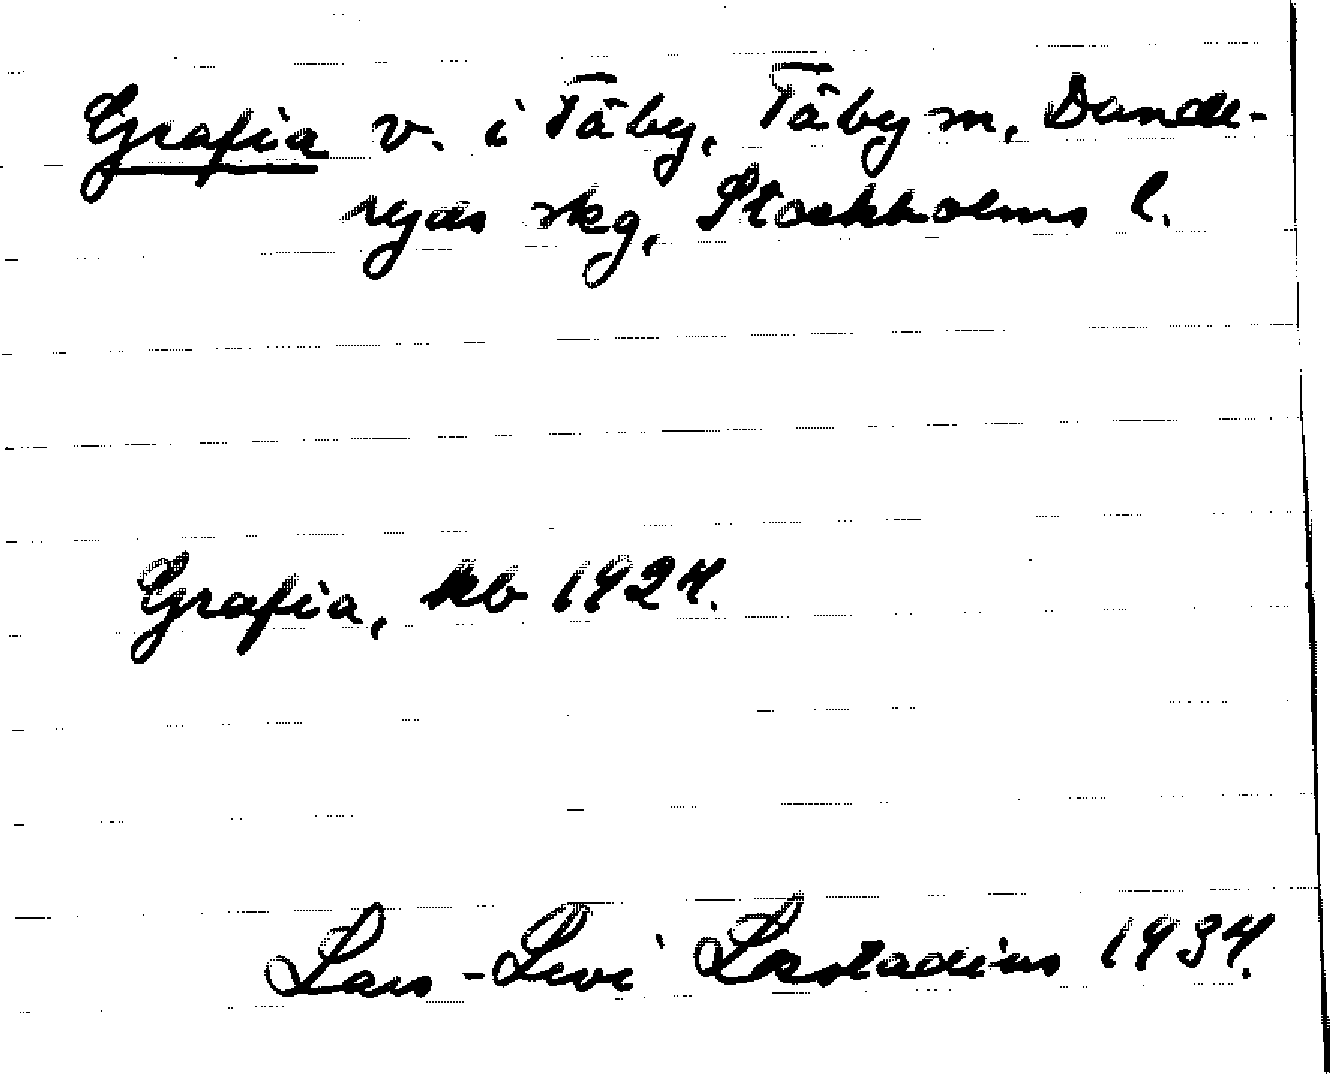 Grafia v. i Täby, Täby sn, Dande-
ryds skg, Stockholms l.
Grafia, kb 1924.
Lars-Levi Læstadius 1934.